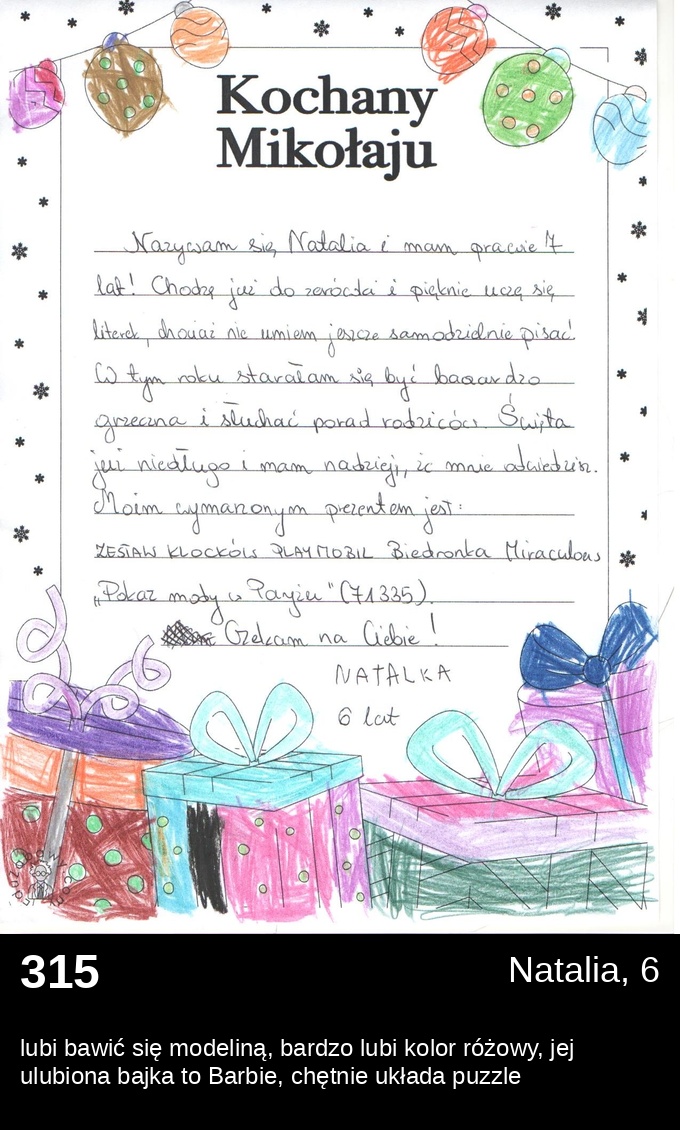 Kochany
Mikołaju
Nazywam się Natalia i mam prawie 7
lat! Chodzę już do zerówki i pięknie uczę się
literek, chociaż nie umiem jeszcze samodzielnie pisać.
W tym roku starałam się być baaardzo
grzeczna i słuchać porad rodziców. Święta
już niedługo i mam nadzieję, że mnie odwiedzisz.
Moim wymarzonym prezentem jest:
ZESTAW KLOCKÓW PLAYMOBIL Biedronka Miraculous
„Pokaz mody w Paryżu" (71335).
Czekam na Ciebie!
NATALKA
6 lat
315
Natalia, 6
lubi bawić się modeliną, bardzo lubi kolor różowy, jej
ulubiona bajka to Barbie, chętnie układa puzzle